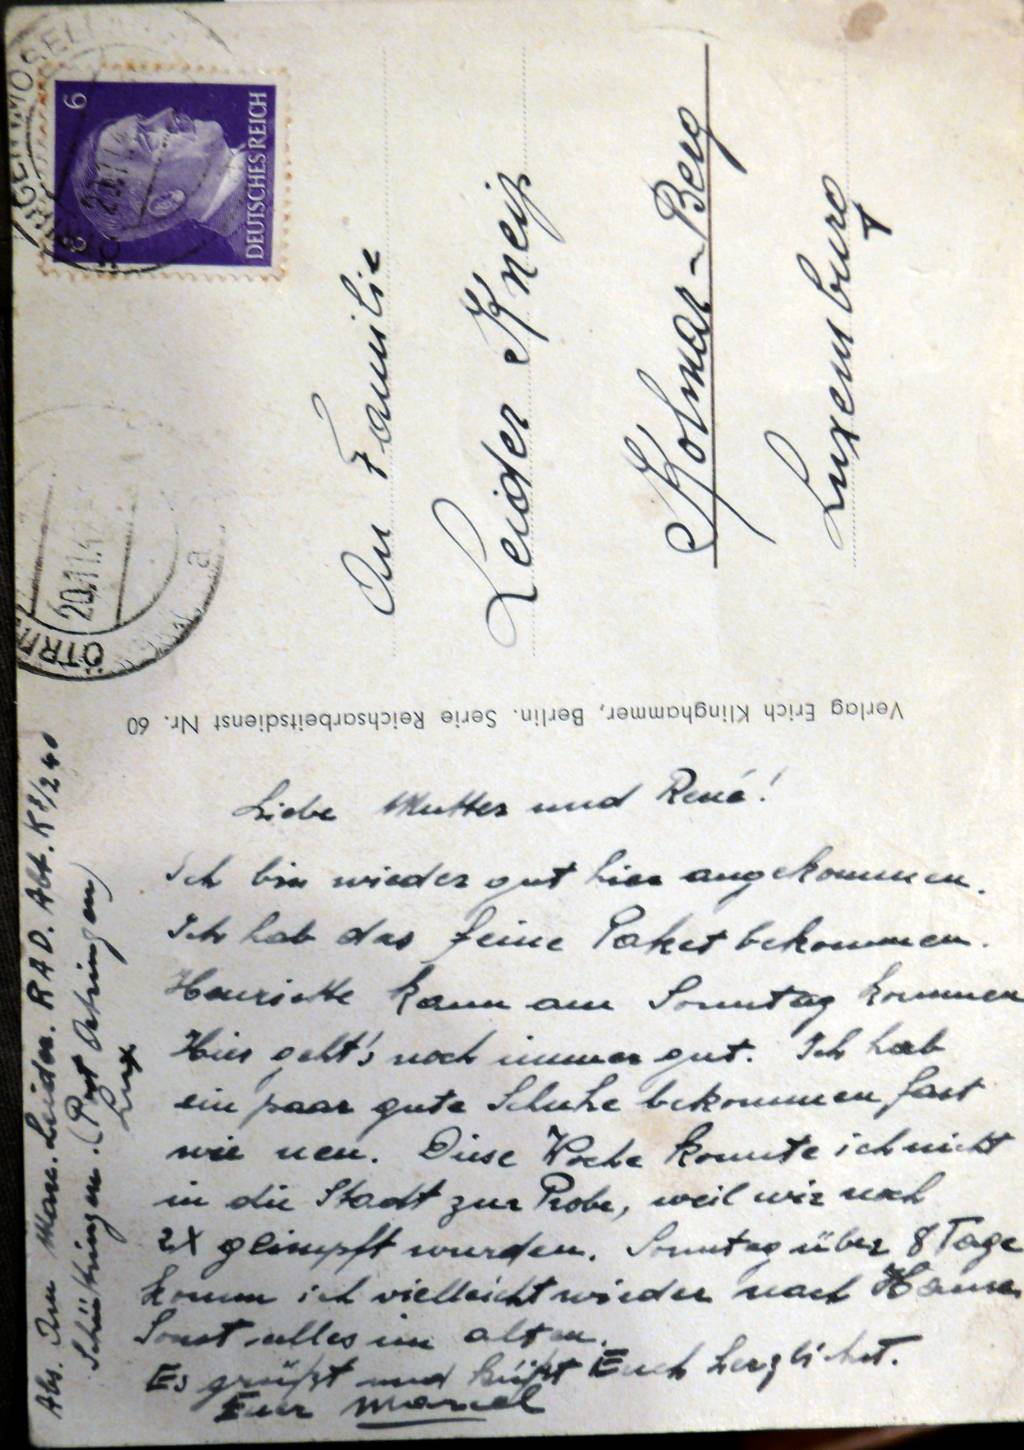 Liebe Mutter und René!
Ich bin wieder gut hier angekommen.
Ich hab das feine Paket bekommen.
Henriette kann am Sonntag kommen
Hier geht's noch immer gut. Ich hab
ein paar gute Schuhe bekommen, fast
wie neu. Diese Woche konnte ich nicht
in die Stadt zur Probe, weil wir noch
2X geimpft wurden. Sonntag über 8 Tage
komm ich vielleicht wieder nach Hause.
Sonst alles im alten.
Es grüßt und küßt Euch herzlichst.
Euer Marcel
Abs. Am Marc. Leider. RAD. Abt. K2/240
Schüttringen. (Post Ötringen)
Lux
Verlag Erich Klinghammer, Berlin. Serie Reichsarbeitsdienst Nr. 60
An Familie
Leider Kneiß
Kolmar-Berg
Luxemburg
DEUTSCHES REICH
6
6
20.11.4
ÖTR
a
20.11.4
MOSEL